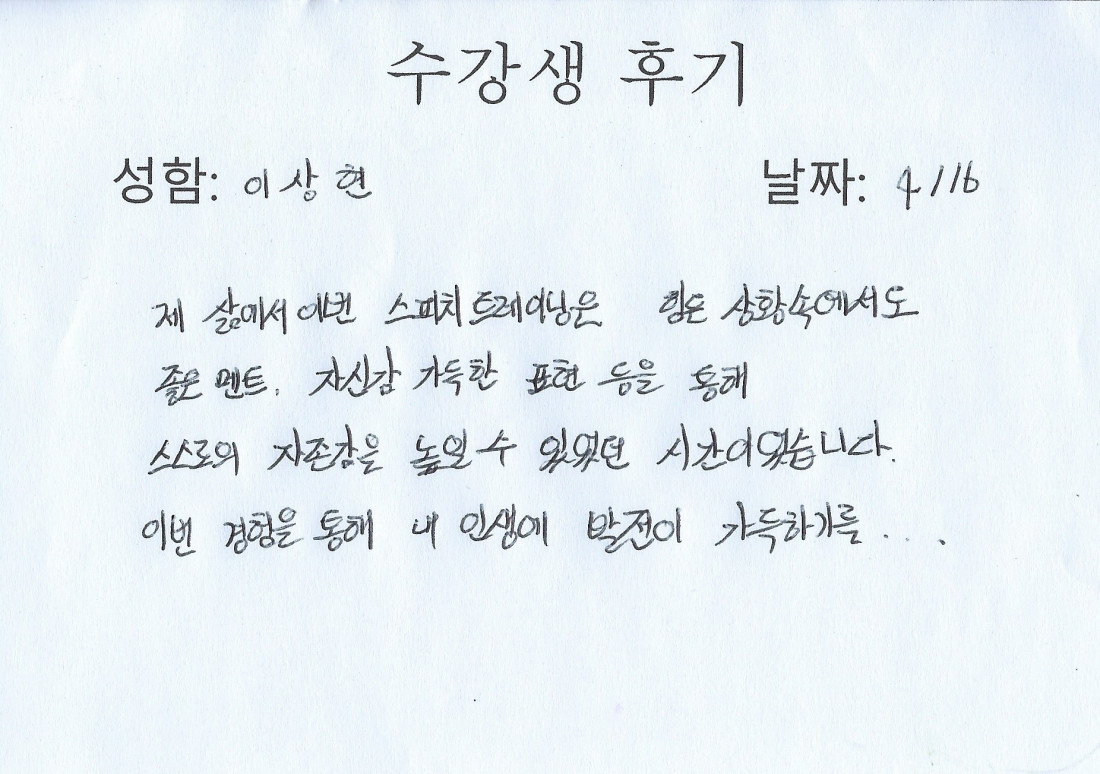 수강생 후기
성함: 이상현 날짜: 4/16
제 삶에서 이번 스피치 트레이닝은 힘든 상황속에서도
좋은 멘트, 자신감 가득한 표현 등을 통해
스스로의 자존감을 높일 수 있었던 시간이었습니다.
이번 경험을 통해 내 인생에 발전이 가득하기를....